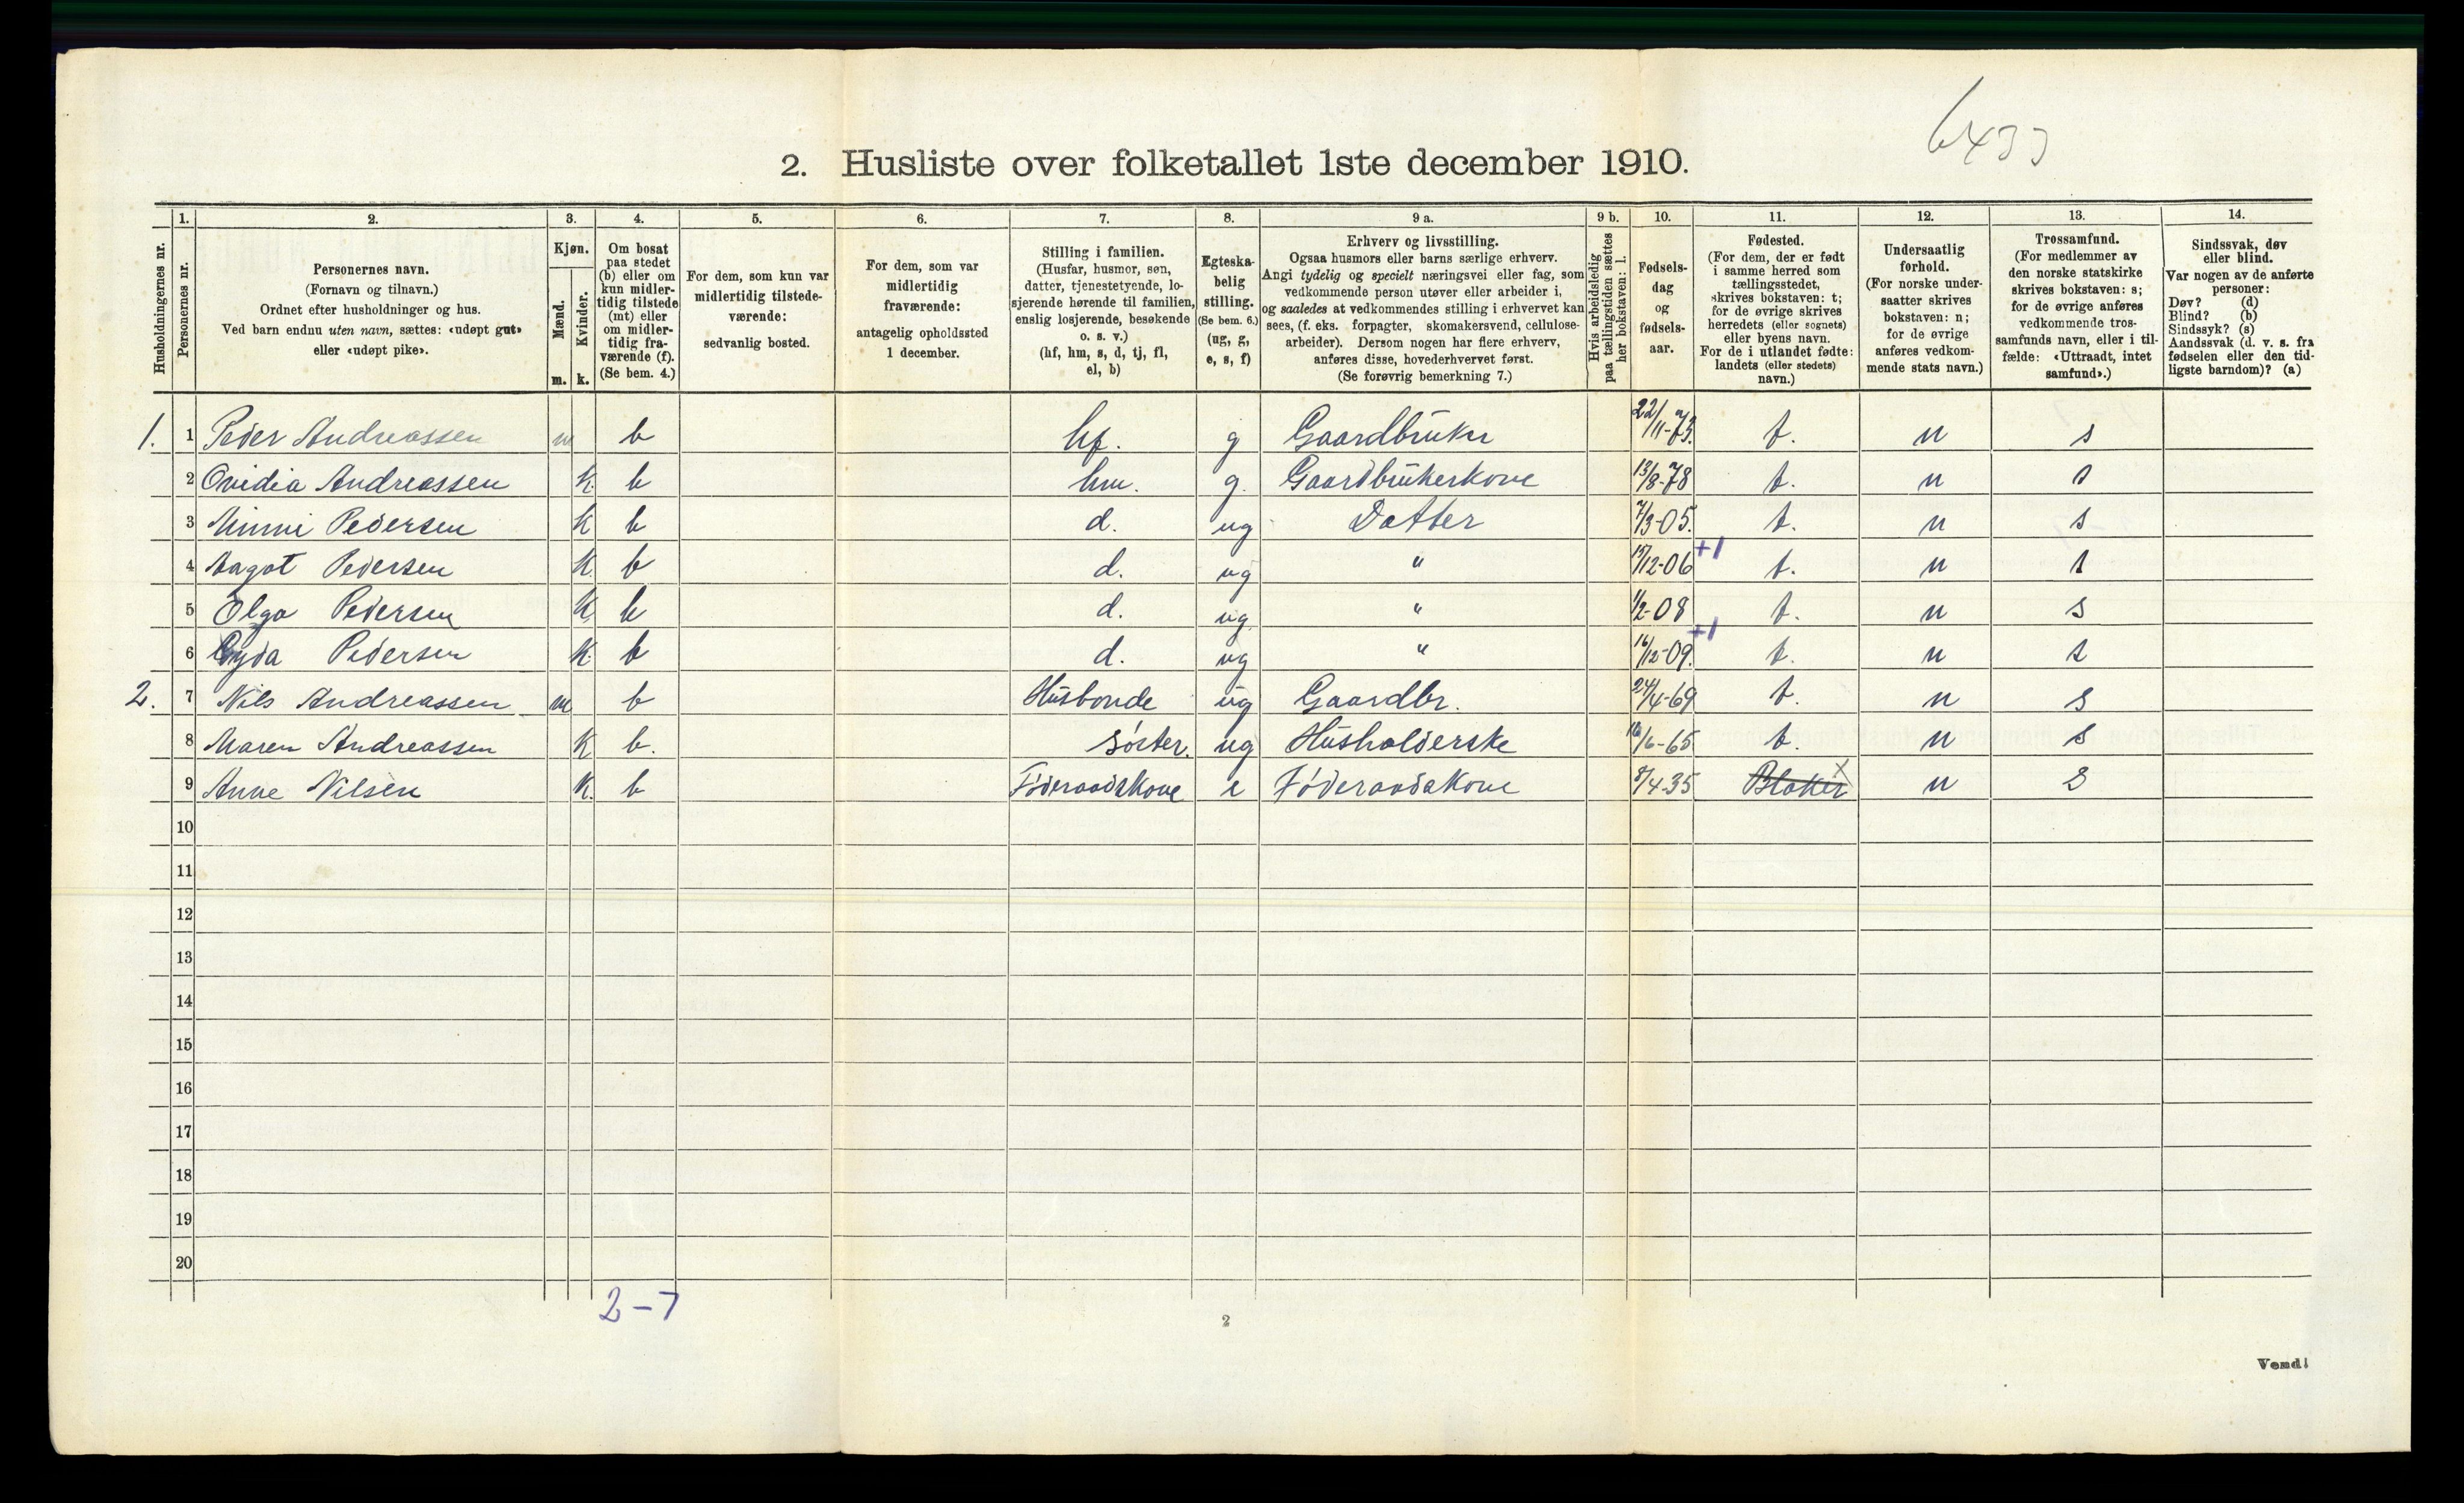 6433
2. Husliste over folketallet 1ste december 1910.
Husholdningernes nr.
1.
Personernes nr.
2.
Personernes navn.
(Fornavn og tilnavn.)
Ordnet efter husholdninger og hus.
Ved barn endnu uten navn, sættes: «udøpt gut»
eller «udøpt pike».
3.
Kjøn.
Mænd.
m.
Kvinder.
k.
4.
Om bosat
paa stedet
(b) eller om
kun midler-
tidig tilstede
(mt) eller
om midler-
tidig fra-
værende (f).
(Se bem. 4.)
5.
For dem, som kun var
midlertidig tilstede-
værende:
sedvanlig bosted.
6.
For dem, som var
midlertidig
fraværende:
antagelig opholdssted
1 december.
7.
Stilling i familien.
(Husfar, husmor, søn,
datter, tjenestetyende, lo-
sjerende hørende til familien,
enslig losjerende, besøkende
o. s. v.)
(hf, hm, s, d, tj, fl,
el, b)
8.
Egteska-
belig
stilling.
(Se bem. 6.)
(ug, g,
e, s, f)
9 a.
Erhverv og livsstilling.
Ogsaa husmors eller barns særlige erhverv.
Angi tydelig og specielt næringsvei eller fag, som
vedkommende person utøver eller arbeider i,
og saaledes at vedkommendes stilling i erhvervet kan
sees, (f. eks. forpagter, skomakersvend, cellulose-
arbeider). Dersom nogen har flere erhverv,
anføres disse, hovederhvervet først.
(Se forøvrig bemerkning 7.)
9 b.
Hvis arbeidsledig
paa tællingstiden sættes
her bokstaven: l.
10.
Fødsels-
dag
og
fødsels-
aar.
11.
Fødested.
(For dem, der er født
i samme herred som
tællingsstedet,
skrives bokstaven: t;
for de øvrige skrives
herredets (eller sognets)
eller byens navn.
For de i utlandet fødte:
landets (eller stedets)
navn.)
12.
Undersaatlig
forhold.
(For norske under-
saatter skrives
bokstaven: n;
for de øvrige
anføres vedkom-
mende stats navn.)
13.
Trossamfund.
(For medlemmer av
den norske statskirke
skrives bokstaven: s;
for de øvrige anføres
vedkommende tros-
samfunds navn, eller i til-
fælde: «Uttraadt, intet
samfund».)
14.
Sindssvak, døv
eller blind.
Var nogen av de anførte
personer:
Døv? (d)
Blind? (b)
Sindssyk? (s)
Aandssvak (d. v. s. fra
fødselen eller den tid-
ligste barndom)? (a)
1. 1 Peder Andreassen m b hf. g Gaardbruker 22/11-73. t. n s
2 Ovidia Andreassen k. b hm. g. Gaardbrukerkone 13/8-78 t. n s
3 Minni Pedersen k b d. ug Datter 7/3-05. t. n s
4 Aagot Pedersen k. b d. ug " 15/12-06 +1 t. n s
5 Olga Pedersen k b d. ug " 1/2-08 t. n s
6 Gyda Pedersen k. b d. ug " 16/12-09. +1 t. n s
2. 7 Nils Andreassen m b Husbonde ug Gaardbr. 24/4-69 t. n s
8 Maren Andreassen k b. Søster. ug Husholderske 16/6-65 t. n s
9 Anne Nilsen k. b Føderaadskone e Føderaadskone 8/4-35 Blaker x n s
10
11
12
13
14
15
16
17
18
19
20
2-7
2
Vend!